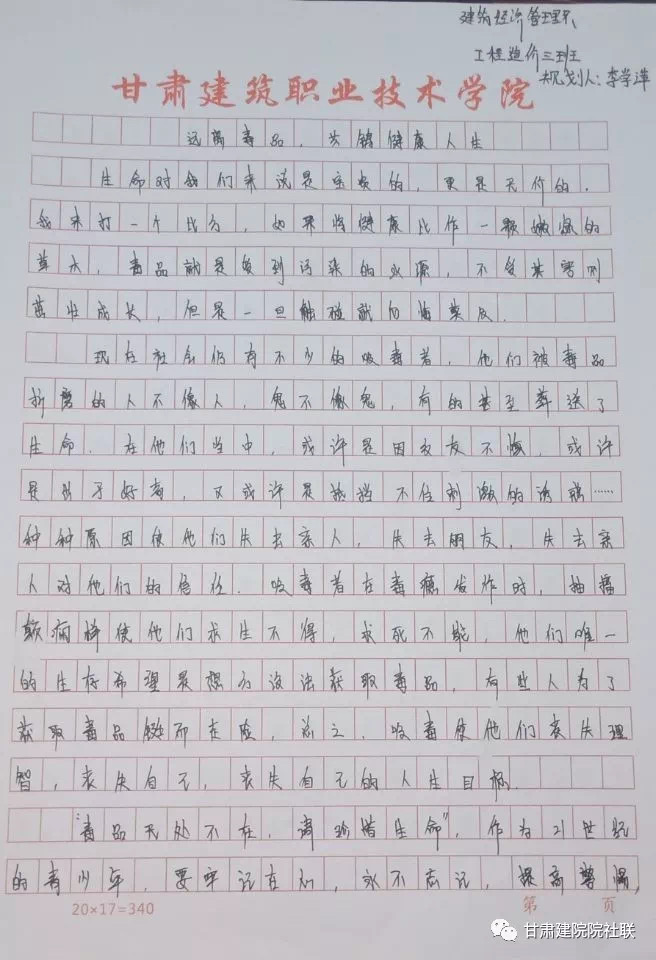 建筑经济管理系
工程造价三班
规划人：李学萍
甘肃建筑职业技术学院
远离毒品，共铸健康人生
生命对我们来说是宝贵的，更是无价的．
我来打一个比方，如果将健康比作一颗嫩绿的
草木，毒品就是受到污染的水源，不受其害则
茁壮成长，但是一旦触碰就后悔莫及．
现在社会仍有不少的吸毒者，他们被毒品
折磨的人不像人，鬼不像鬼，有的甚至葬送了
生命．在他们当中，或许是因交友不慎，或许
是出于好奇，又或许是抵挡不住刺激的诱惑……
种种原因使他们失去亲人，失去朋友，失去亲
人对他们的信任．吸毒者在毒瘾发作时，抽搐
欺病样使他们求生不得，求死不能，他们唯一
的生存希望是想方设法获取毒品，有些人为了
获取毒品铤而走险，总之，吸毒使他们丧失理
智，丧失自己，丧失自己的人生目标．
“毒品无处不在，请珍惜生命”，作为21世纪
的青少年，要牢记在心，永不忘记，提高警惕，
20×17=340
第 页
甘肃建院院社联